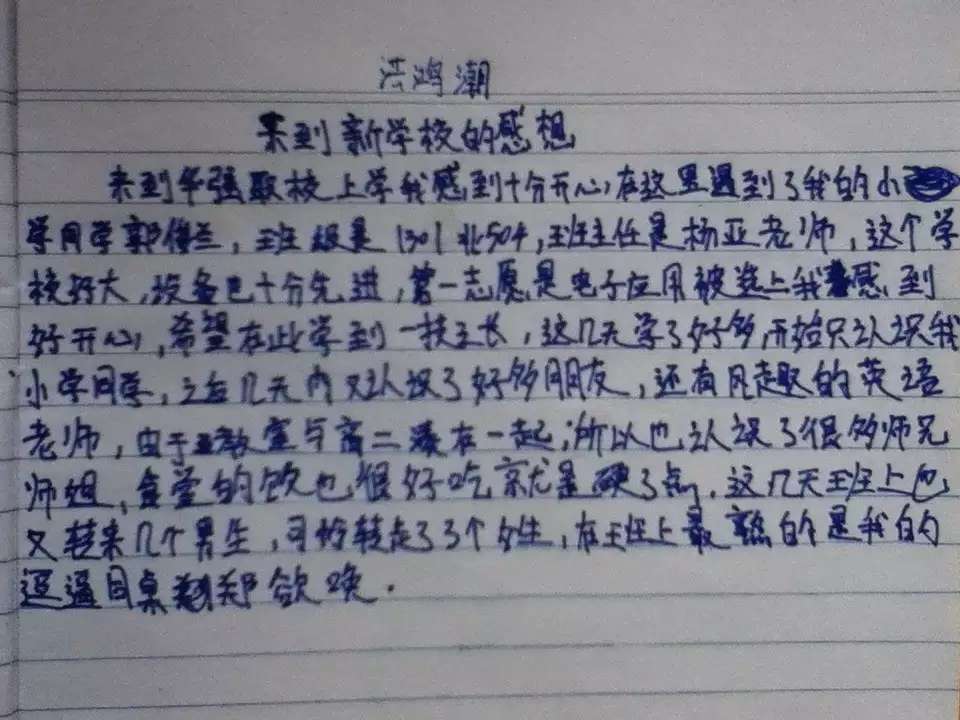 鸿潮
来到新学校的感想
来到华强职校上学我感到十分开心,在这里遇到了我的小
学同学郭倩兰,班级是1301北504,班主任是杨亚老师,这个学
校好大,设备也十分先进,第一志愿是电子应用被选上我感到
好开心,希望在此学到一技之长,这几天学了好多,开始只认识我
小学同学,之后几天内又认识了好多朋友,还有风趣的英语
老师,由于教室与高二凑在一起,所以也认识了很多师兄
师姐,食堂的饮也很好吃就是硬了点.这几天班上也
又转来几个男生,可惜转走了3个女生,在班上最熟的是我的
逗逼同桌郑欲唤.